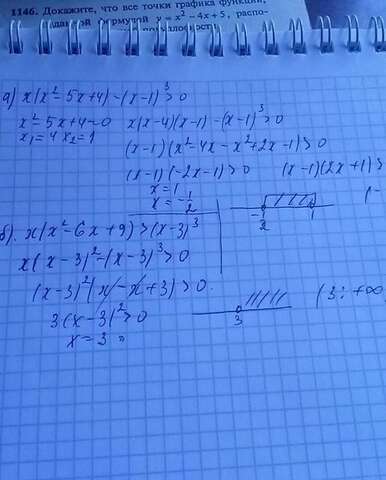 1146. Докажите, что все точки графика функции,
формулой y = x² - 4x + 5, распо-
а) x(x² - 5x + 4) - (x - 1)³ > 0
x² - 5x + 4 = 0 x(x - 4)(x - 1) - (x - 1)³ > 0
x₁ = 4 x₂ = 1 (x - 1)(x² - 4x - x² + 2x - 1) > 0
(x - 1)(-2x - 1) > 0 (x - 1)(2x + 1) >
x = 1
x = -1/2 -1/2 1 (-
б). x(x² - 6x + 9) > (x - 3)³
x(x - 3)² - (x - 3)³ > 0
(x - 3)²(x - x + 3) > 0.
3(x - 3)² > 0 3 (3; +∞
x = 3